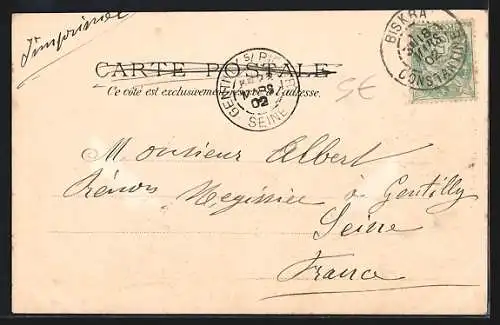 Imprimé
CARTE POSTALE
Ce côté est exclusivement réservé à l'adresse.
BISKRA
18 MARS 02
CONSTANTINE
GENTILLY
MARS
02
SEINE
5€
Monsieur Albert
Mégissier à Gentilly
Seine
France